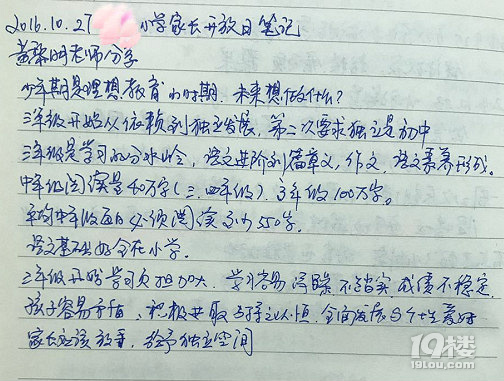 2016.10.27 小学家长开放日笔记
黄黎明老师分享
少年期是理想教育的时期. 未来想做什么?
三年级开始从依赖到独立发展, 第二次要求独立是初中
三年级是学习的分水岭, 语文进阶到篇章义, 作文, 语文素养形成。
中年级阅读量40万字(三.四年级), 高年级100万字。
平均中年级每日必须阅读不少550字.
语文基础如今在小学。
三年级开始学习负担加大. 学习容易浮躁 不踏实 成绩不稳定.
孩子容易矛盾, 积极进取 与持之以恒. 全面发展与个性爱好
家长应该放手, 给予独立空间
19楼
19lou.com